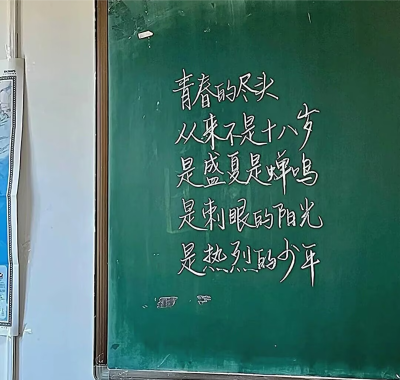 青春的尽头
从来不是十八岁
是盛夏是蝉鸣
是刺眼的阳光
是热烈的少年